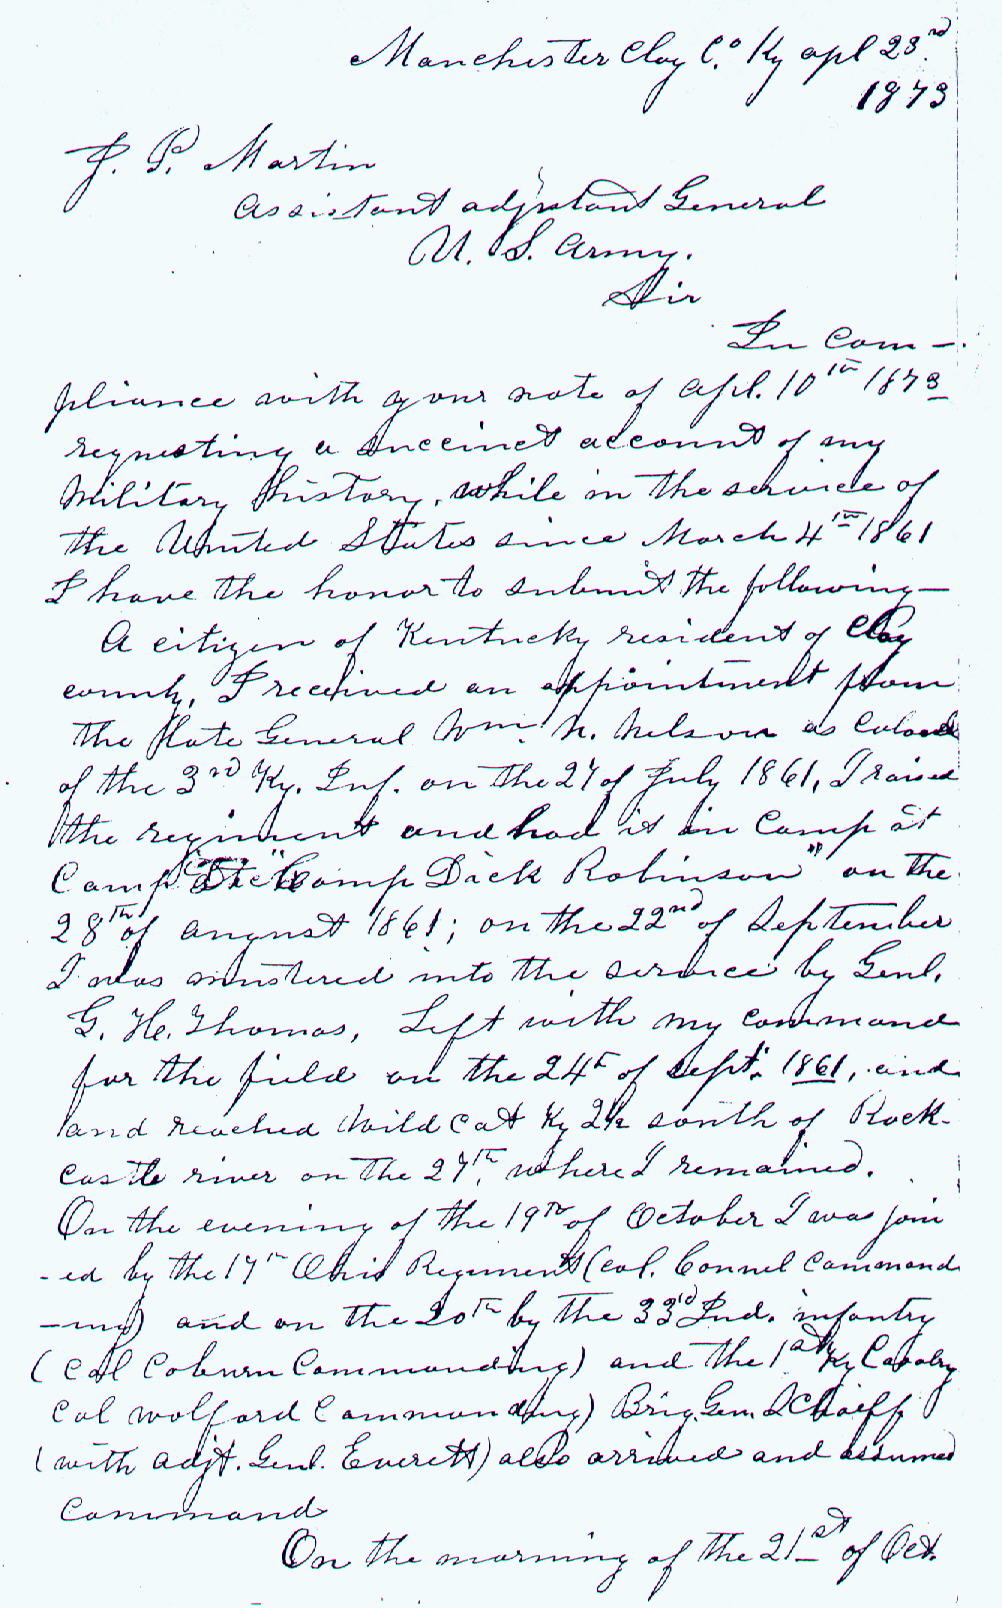 Manchester Clay C.o Ky apl 23rd.
1873
J. P. Martin
Assistant adjutant General
U. S. Army.
Sir
In Com-
pliance with your note of Apl. 10th 1873
requesting a succinct account of my
Military history, while in the service of
the United States since March 4th 1861
I have the honor to submit the following—
A citizen of Kentucky resident of Clay
county, I received an appointment from
the late General Wm. N. Nelson as Colonel
of the 3rd Ky. Inf. on the 27 of July 1861, I raised
the regiment and had it in Camp at
Camp "Camp Dick Robinson" on the
28th of august 1861; on the 22nd of September
I was mustered into the service by Genl.
G. H. Thomas, Left with my command
for the field on the 24th of Sept. 1861, and
and reached Wild Cat Ky 2½ south of Rock-
castle river on the 27th, where I remained.
On the evening of the 19th of October I was join
-ed by the 17th Ohio Regiment (Col. Connel Command
-ing) and on the 20th by the 33rd Ind. infantry
(Col Coburn Commanding) and the 1st Ky Cavalry
Col Wolford Commanding) Brig. Gen. Schoepf
(with Adjt. Genl. Everett) also arrived and assumed
Command
On the morning of the 21st of Oct.